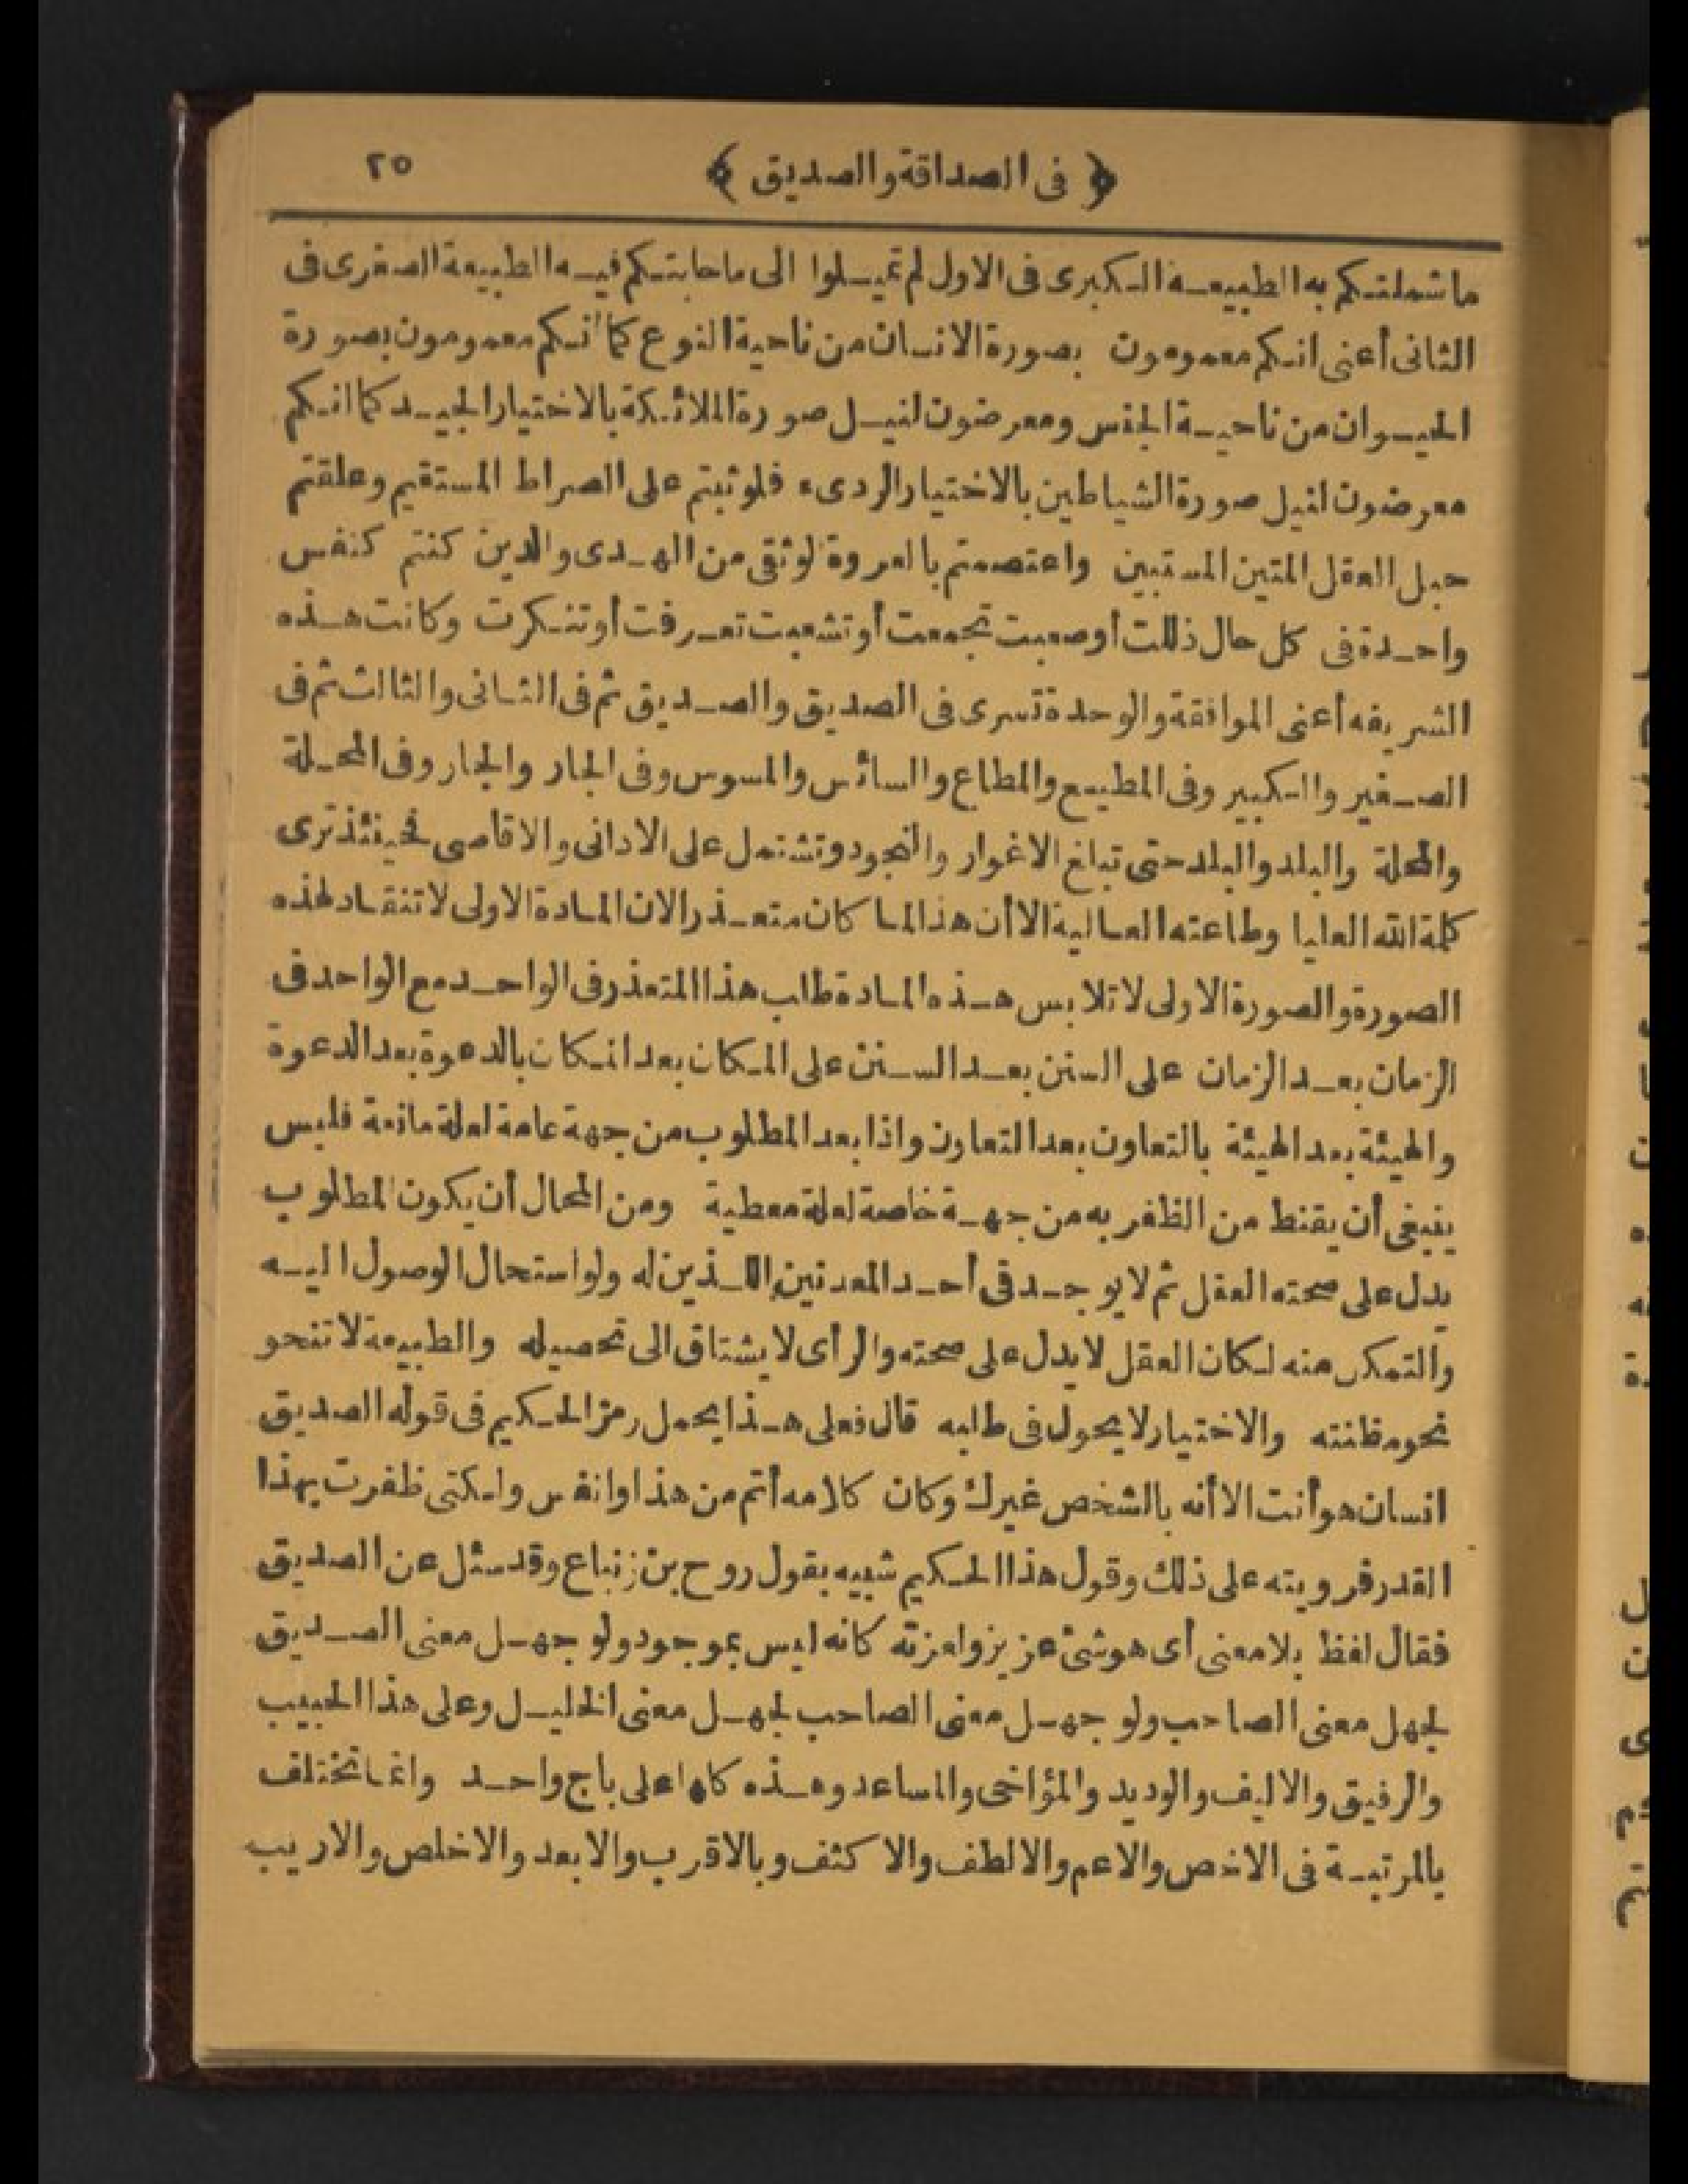 ﴿ فى الصداقة والصديق ﴾ ٢٥
ما شملتكم به الطبيعة الكبرى فى الاول لم تميلوا الى ما حابتكم فيه الطبيعة الصغرى فى
الثانى أعنى انكم معمومون بصورة الانسان من ناحية النوع كما انكم معمومون بصورة
الحيوان من ناحية الجنس ومعرضون لنيل صورة الملائكة بالاختيار الجيد كما انكم
معرضون لنيل صورة الشياطين بالاختيار الردىء فلو ثبتم على الصراط المستقيم وعلقتم
حبل العقل المتين المستبين واعتصمتم بالعروة الوثقى من الهدى والدين كنتم كنفس
واحدة فى كل حال ذللت أو صعبت تجمعت أو تشعبت تعرفت أو تنكرت وكانت هذه
الشريفه أعنى الموافقة والوحدة تسرى فى الصديق والصديق ثم فى الثانى والثالث ثم فى
الصغير والكبير وفى المطيع والمطاع والسائس والمسوس وفى الجار والجار وفى المحلة
والمحلة والبلد والبلد حتى تبلغ الاغوار والنجود وتشتمل على الادانى والاقاصى فحينئذ ترى
كلمة الله العليا وطاعته العالية الا أن هذا لما كان متعذرا لان المادة الاولى لا تنقاد لهذه
الصورة والصورة الاولى لا تلابس هذه المادة طلب هذا المتعذر فى الواحد مع الواحد فى
الزمان بعد الزمان على السنن بعد السنن على المكان بعد المكان بالدعوة بعد الدعوة
والهيئة بعد الهيئة بالتعاون بعد التعاون واذا بعد المطلوب من جهة عامة لعلة مانعة فليس
ينبغى أن يقنط من الظفر به من جهة خاصة لعلة معطية ومن المحال أن يكون المطلوب
يدل على صحته العقل ثم لا يوجد فى أحد المعدنين اللذين له ولو استحال الوصول اليه
والتمكن منه لكان العقل لا يدل على صحته والرأى لا يشتاق الى تحصيله والطبيعة لا تنحو
نحو مظنته والاختيار لا يحول فى طلبه قال فعلى هذا يحمل رمز الحكيم فى قوله الصديق
انسان هو أنت الا أنه بالشخص غيرك وكان كلامه أتم من هذا وانفس ولكنى ظفرت بهذا
القدر فرويته على ذلك وقول هذا الحكيم شبيه بقول روح بن زنباع وقد سئل عن الصديق
فقال لفظ بلا معنى أى هو شئ عزيز ولعزته كانه ليس بموجود ولو جهل معنى الصديق
لجهل معنى الصاحب ولو جهل معنى الصاحب لجهل معنى الخليل وعلى هذا الحبيب
والرفيق والاليف والوديد والمؤاخى والمساعد وهذه كلها على باج واحد وانما تختلف
بالمرتبة فى الاخص والاعم والالطف والاكثف وبالاقرب والابعد والاخلص والاريب